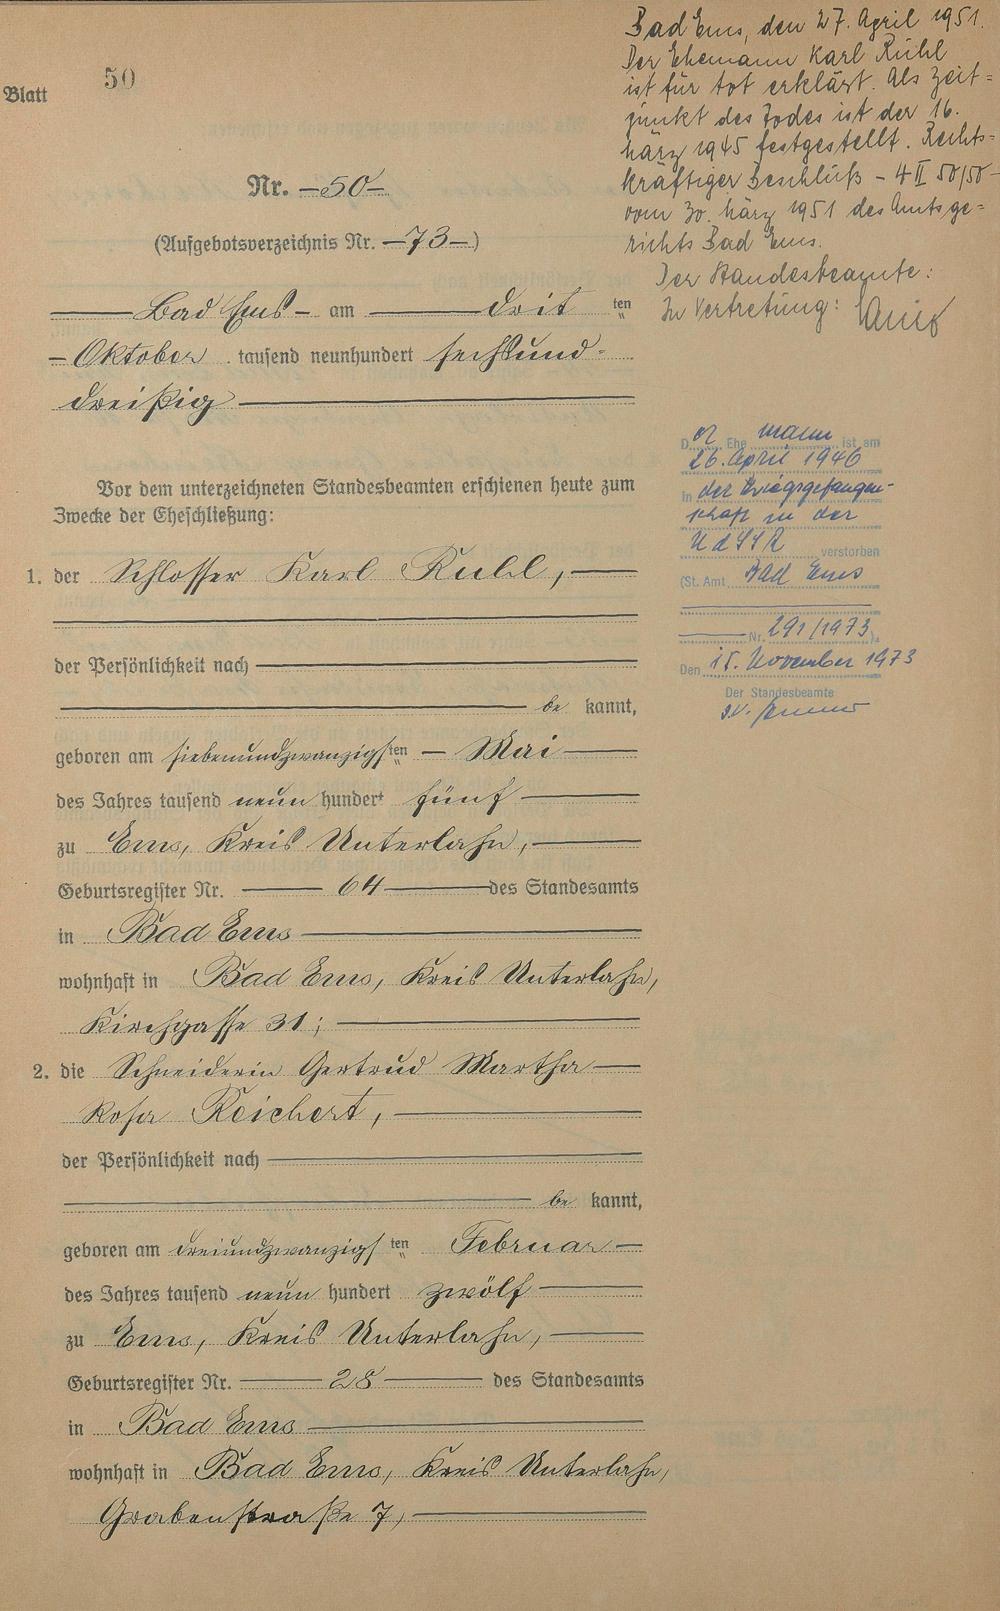 Blatt 50
Nr. —50—
(Aufgebotsverzeichnis Nr. —73—)
Bad Ems — am — drit ten
— Oktober tausend neunhundert sechsund-
dreißig
Vor dem unterzeichneten Standesbeamten erschienen heute zum
Zwecke der Eheschließung:
1. der Schlosser Karl Ruhl,
der Persönlichkeit nach
be kannt,
geboren am siebenundzwanzigsten — Mai
des Jahres tausend neun hundert fünf
zu Ems, Kreis Unterlahn,
Geburtsregister Nr. 64 des Standesamts
in Bad Ems
wohnhaft in Bad Ems, Kreis Unterlahn,
Kirchgasse 31;
2. die Schneiderin Gertrud Martha
Rosa Reichert,
der Persönlichkeit nach
be kannt,
geboren am dreiundzwanzigsten Februar
des Jahres tausend neun hundert zwölf
zu Ems, Kreis Unterlahn,
Geburtsregister Nr. 28 des Standesamts
in Bad Ems
wohnhaft in Bad Ems, Kreis Unterlahn,
Grabenstraße 7,
Bad Ems, den 27. April 1951.
Der Ehemann Karl Ruhl
ist für tot erklärt. Als Zeit=
punkt des Todes ist der 16.
März 1945 festgestellt. Rechts=
kräftiger Beschluß – 4 II 50/50 –
vom 30. März 1951 des Amtsge=
richts Bad Ems.
Der Standesbeamte:
In Vertretung:
Der Ehemann ist am
26. April 1946
in der Kriegsgefangen-
schaft in der
UdSSR verstorben
(St. Amt Bad Ems
Nr. 291/1973).
Den 15. November 1973
Der Standesbeamte